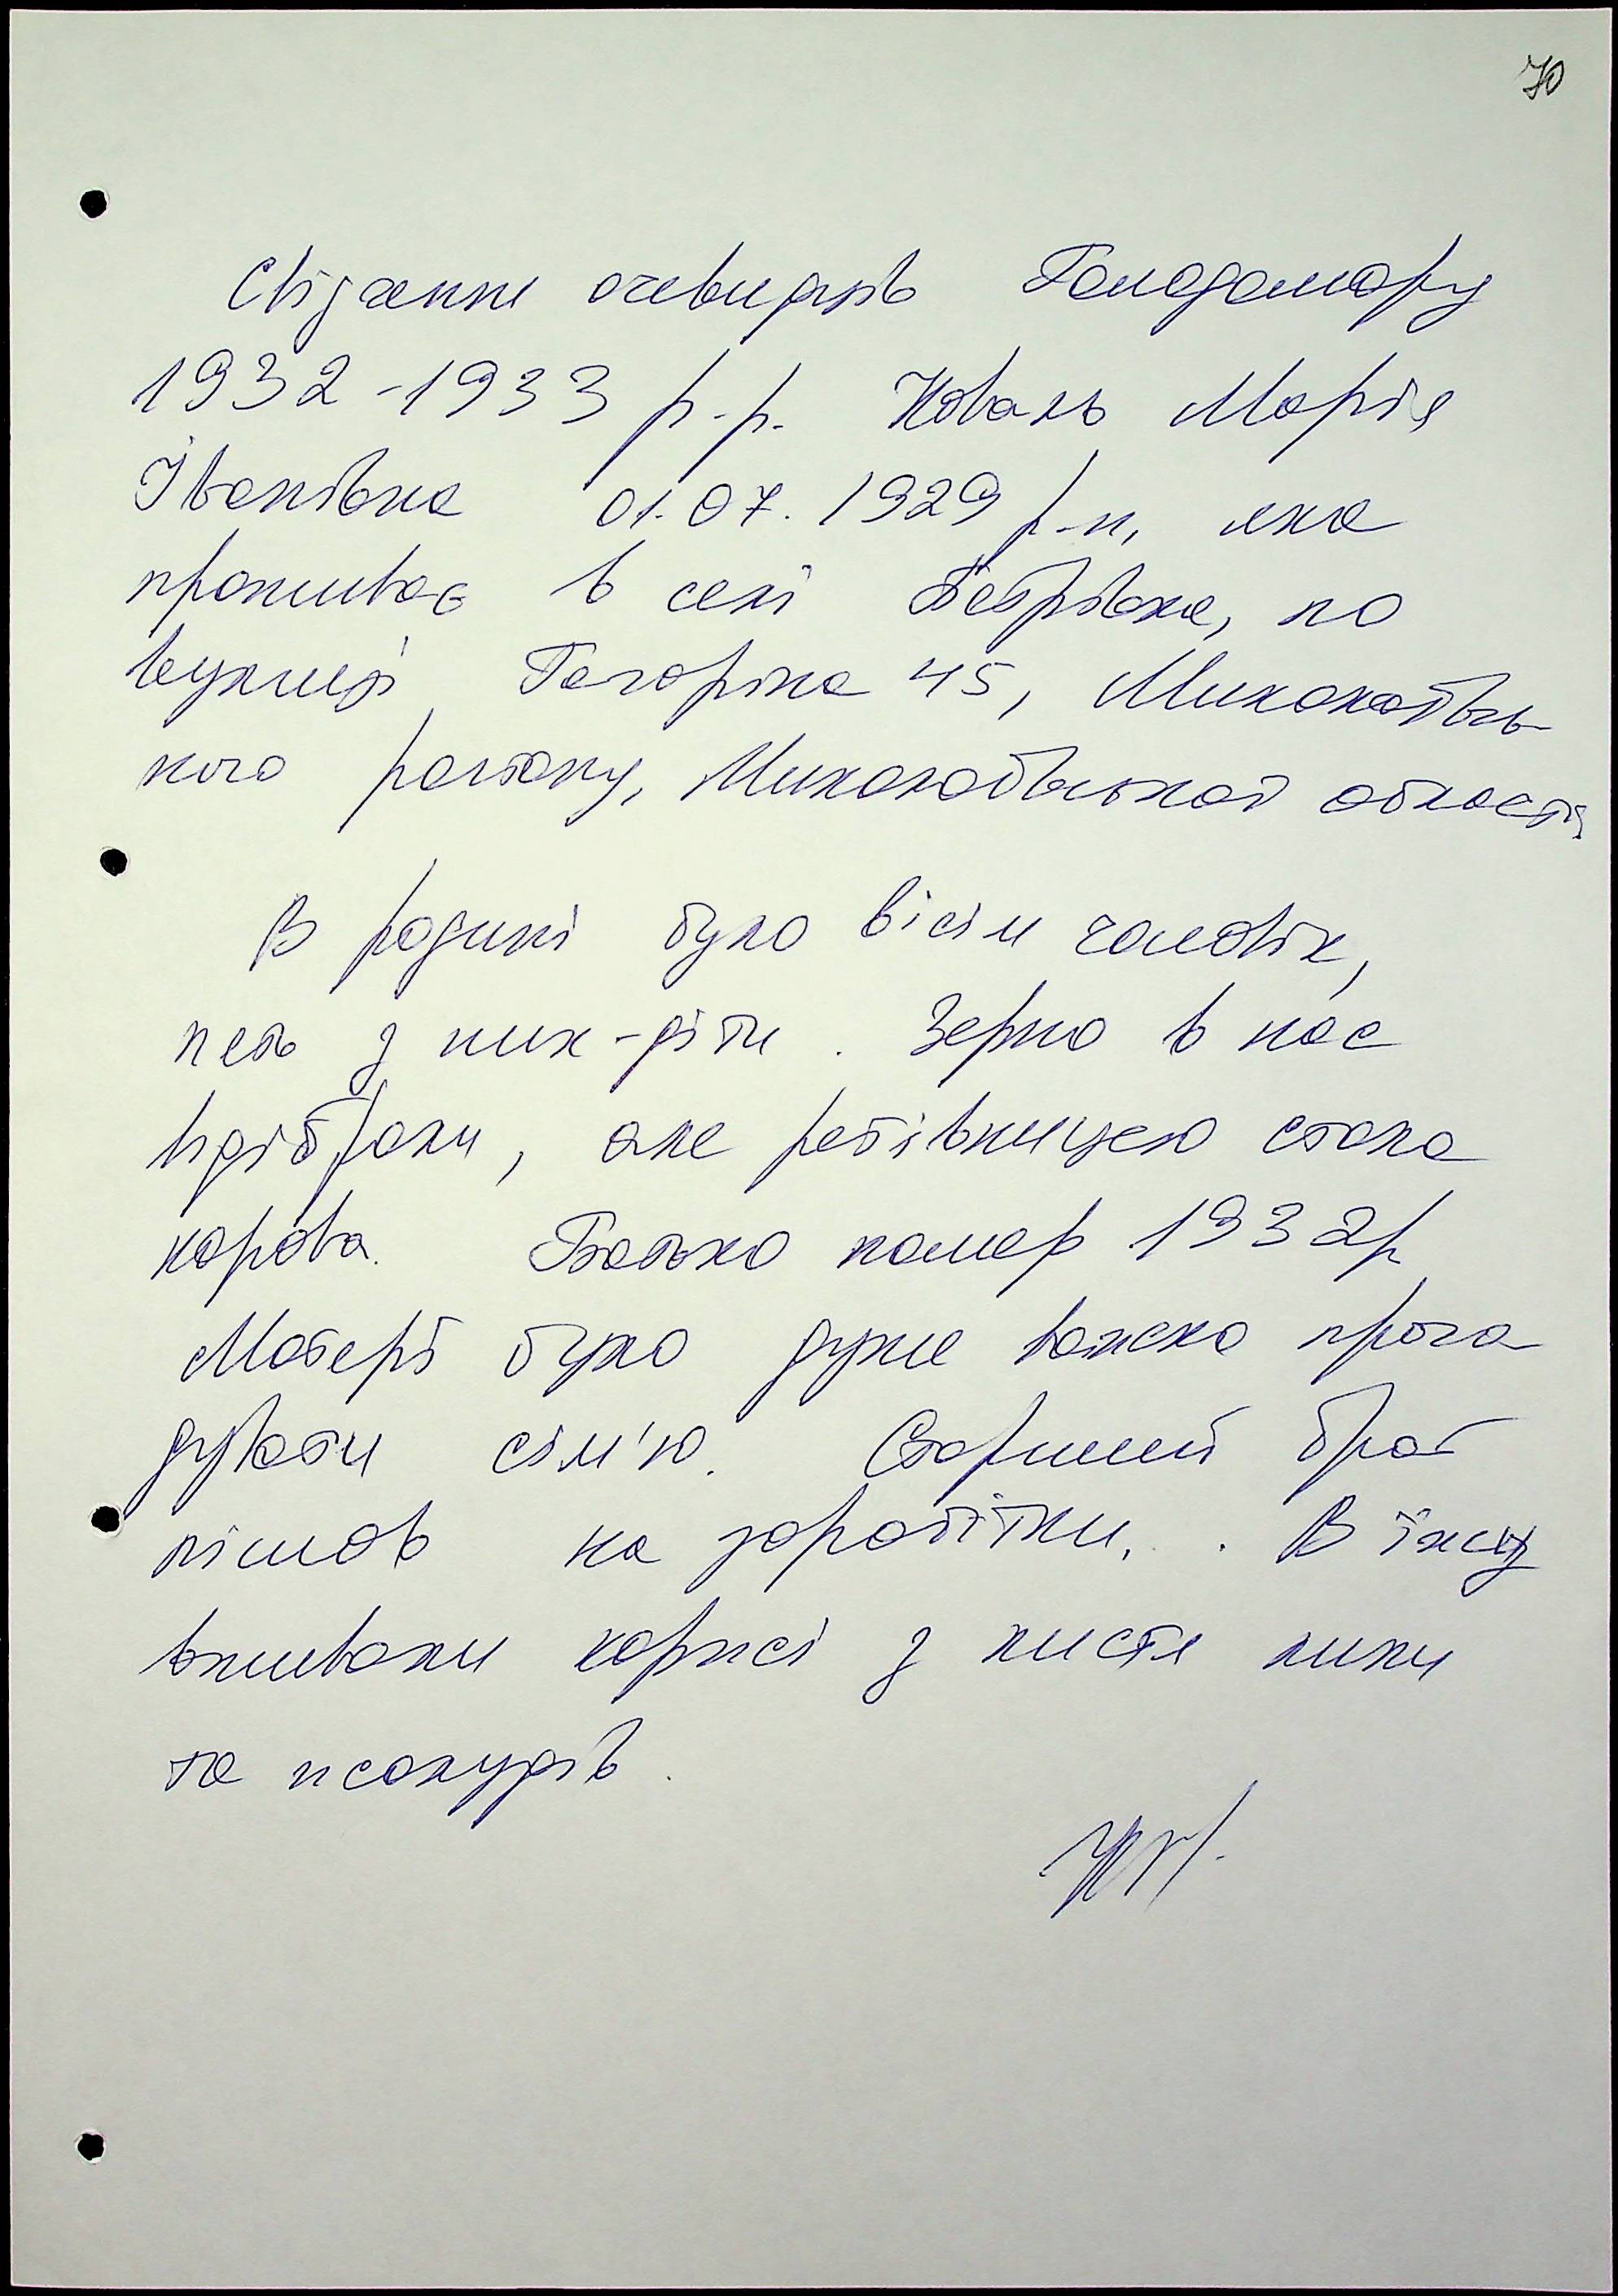 70
Свідчення очевидців Голодомору
1932-1933 р.р. Коваль Марія
Іванівна 01.07.1929 р.н, яка
проживає в селі Петрівка, по
вулиці Гагаріна 45, Миколаївсь-
кого району, Миколаївської області
В родині було вісім чоловік,
пять з них - діти. Зерно в нас
відібрали, але рятівницею стала
корова. Батько помер 1932р
Матері було дуже важко прого
дувати сім'ю. Старший брат
пішов на заробітки. . В їжу
вживали коржі з листя липи
та жолудів.